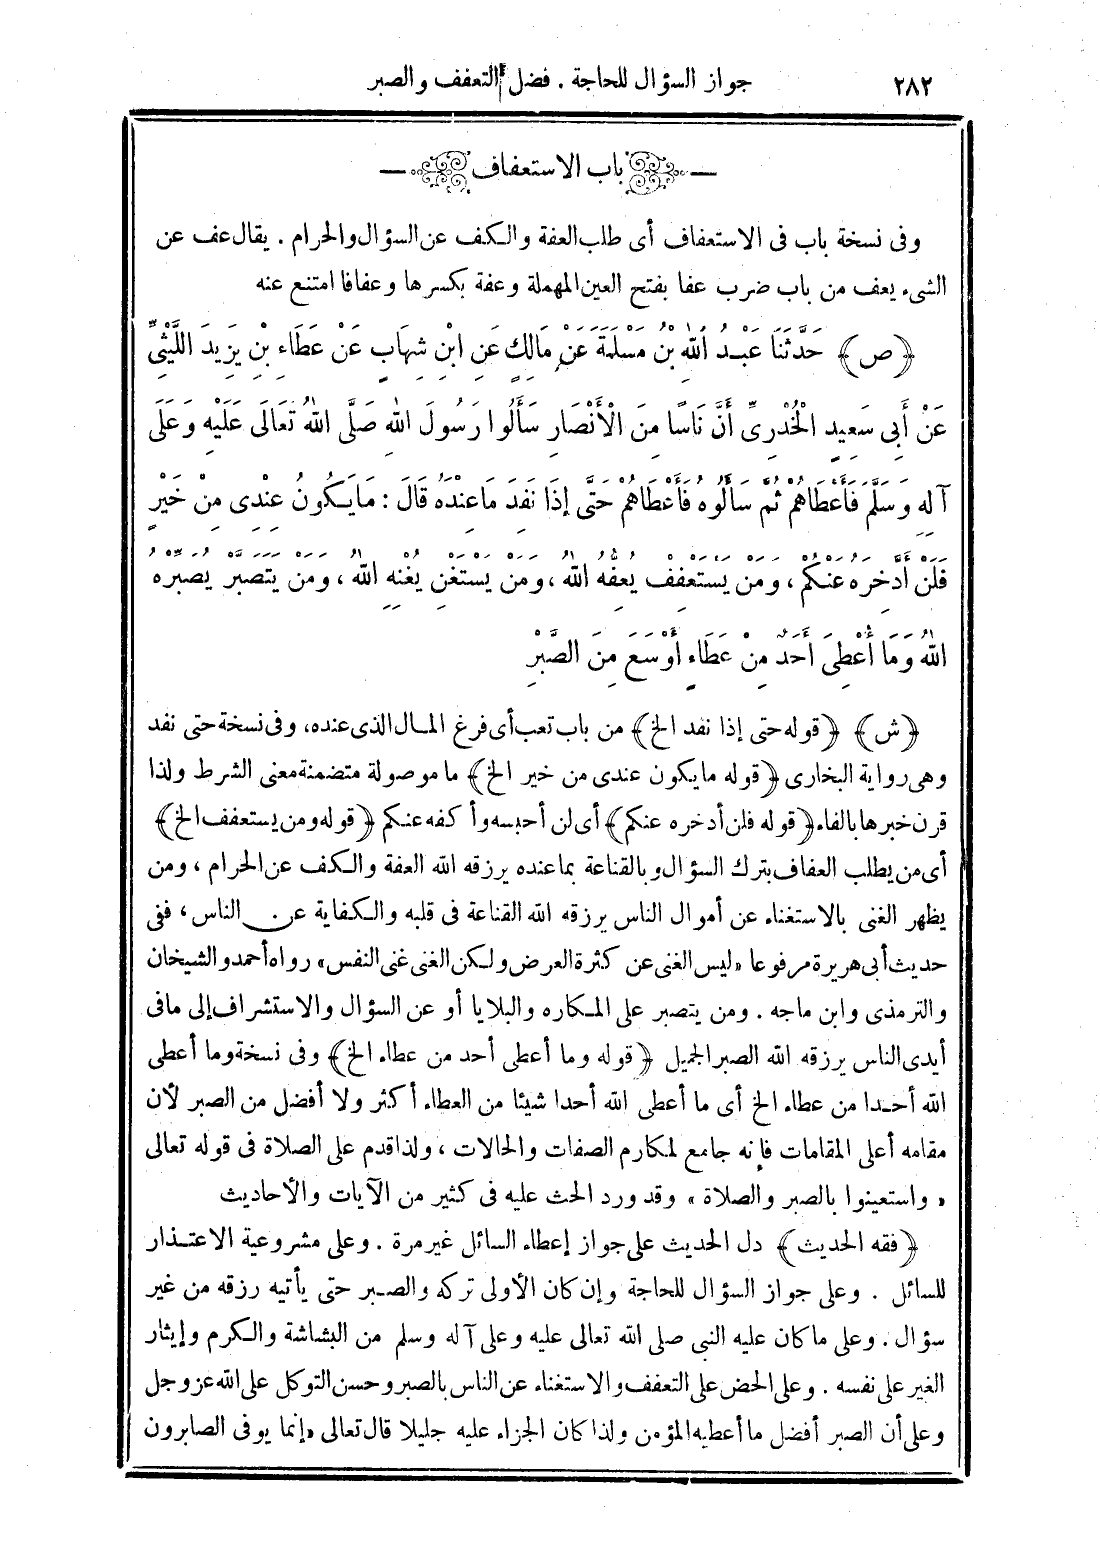 ٢٨٢
جواز السؤال للحاجة . فضل التعفف والصبر
باب الاستعفاف
وفى نسخة باب فى الاستعفاف أى طلب العفة والكف عن السؤال والحرام . يقال عف عن
الشىء يعف من باب ضرب عفا بفتح العين المهملة وعفة بكسرها وعفافا امتنع عنه
﴿ص﴾ حَدَّثَنَا عَبْدُ اللهِ بْنُ مَسْلَمَةَ عَنْ مَالِكٍ عَنِ ابْنِ شِهَابٍ عَنْ عَطَاءِ بْنِ يَزِيدَ اللَّيْثِىِّ
عَنْ أَبِى سَعِيدٍ الْخُدْرِىِّ أَنَّ نَاسًا مِنَ الْأَنْصَارِ سَأَلُوا رَسُولَ اللهِ صَلَّى اللهُ تَعَالَى عَلَيْهِ وَعَلَى
آلِهِ وَسَلَّمَ فَأَعْطَاهُمْ ثُمَّ سَأَلُوهُ فَأَعْطَاهُمْ حَتَّى إِذَا نَفِدَ مَا عِنْدَهُ قَالَ : مَا يَكُونُ عِنْدِى مِنْ خَيْرٍ
فَلَنْ أَدَّخِرَهُ عَنْكُمْ ، وَمَنْ يَسْتَعْفِفْ يُعِفُّهُ اللهُ ، وَمَنْ يَسْتَغْنِ يُغْنِهِ اللهُ ، وَمَنْ يَتَصَبَّرْ يُصَبِّرْهُ
اللهُ وَمَا أُعْطِىَ أَحَدٌ مِنْ عَطَاءٍ أَوْسَعَ مِنَ الصَّبْرِ
﴿ش﴾ ﴿قوله حتى إذا نفد الخ﴾ من باب تعب أى فرغ المال الذى عنده، وفى نسخة حتى نفد
وهى رواية البخارى ﴿قوله ما يكون عندى من خير الخ﴾ ما موصولة متضمنة معنى الشرط ولذا
قرن خبرها بالفاء ﴿قوله فلن أدخره عنكم﴾ أى لن أحبسه وأكفه عنكم ﴿قوله ومن يستعفف الخ﴾
أى من يطلب العفاف بترك السؤال وبالقناعة بما عنده يرزقه الله العفة والكف عن الحرام ، ومن
يظهر الغنى بالاستغناء عن أموال الناس يرزقه الله القناعة فى قلبه والكفاية عن الناس ، ففى
حديث أبى هريرة مرفوعا «ليس الغنى عن كثرة العرض ولكن الغنى غنى النفس» رواه أحمد والشيخان
والترمذى وابن ماجه . ومن يتصبر على المكاره والبلايا أو عن السؤال والاستشراف إلى ما فى
أيدى الناس يرزقه الله الصبر الجميل ﴿قوله وما أعطى أحد من عطاء الخ﴾ وفى نسخة وما أعطى
الله أحدا من عطاء الخ أى ما أعطى الله أحدا شيئا من العطاء أكثر ولا أفضل من الصبر لأن
مقامه أعلى المقامات فإنه جامع لمكارم الصفات والحالات ، ولذا قدم على الصلاة فى قوله تعالى
« واستعينوا بالصبر والصلاة » وقد ورد الحث عليه فى كثير من الآيات والأحاديث
﴿فقه الحديث﴾ دل الحديث على جواز إعطاء السائل غير مرة . وعلى مشروعية الاعتذار
للسائل . وعلى جواز السؤال للحاجة وإن كان الأولى تركه والصبر حتى يأتيه رزقه من غير
سؤال . وعلى ما كان عليه النبى صلى الله تعالى عليه وعلى آله وسلم من البشاشة والكرم وإيثار
الغير على نفسه . وعلى الحض على التعفف والاستغناء عن الناس بالصبر وحسن التوكل على الله عز وجل
وعلى أن الصبر أفضل ما أعطيه المؤمن ولذا كان الجزاء عليه جليلا قال تعالى «إنما يوفى الصابرون